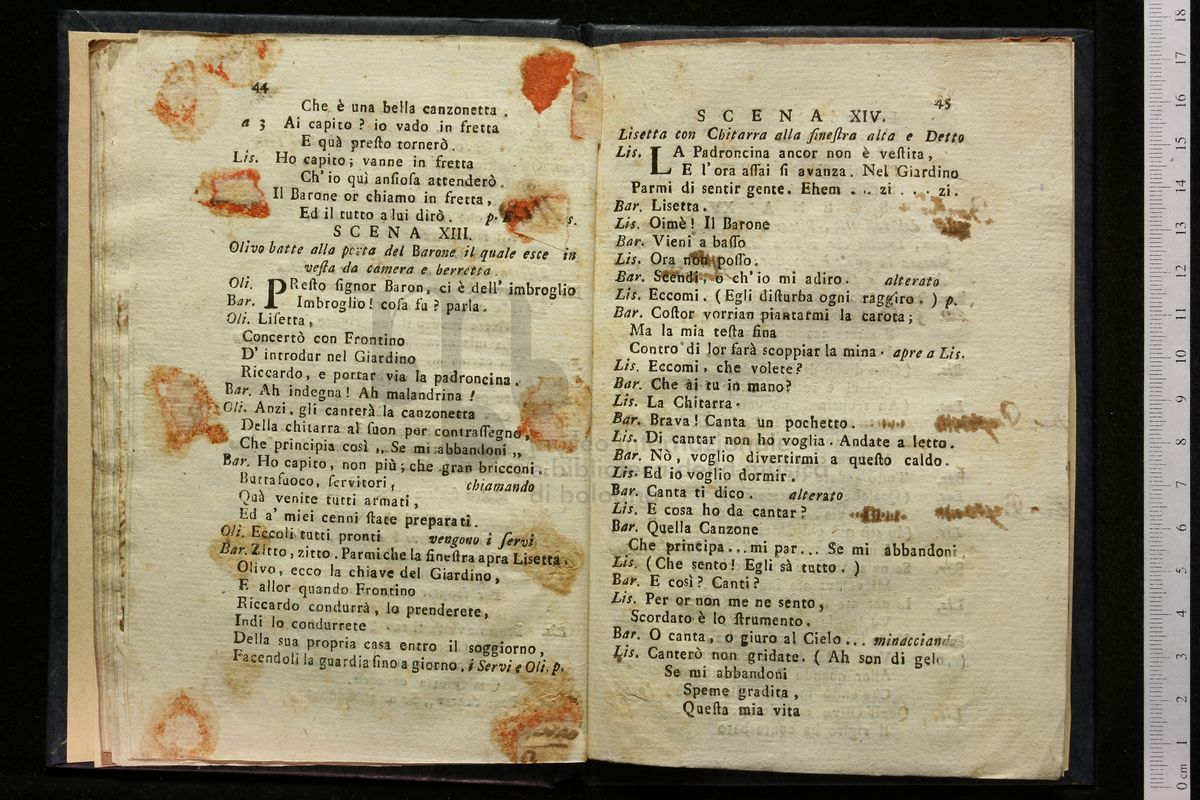 44
Che è una bella canzonetta.
a 3 Ai capito? io vado in fretta
E quà preſto tornerò.
Lis. Ho capito; vanne in fretta
Ch' io quì anſioſa attenderò.
Il Barone or chiamo in fretta,
Ed il tutto a lui dirò. p.
s.
SCENA XIII.
Olivo batte alla porta del Barone il quale esce in
veſta da camera e berretta.
Oli. PReſto ſignor Baron, ci è dell' imbroglio
Bar. Imbroglio! coſa fu? parla.
Oli. Liſetta,
Concertò con Frontino
D' introdur nel Giardino
Riccardo, e portar via la padroncina.
Bar. Ah indegna! Ah malandrina!
Oli. Anzi, gli canterà la canzonetta
Della chitarra al ſuon per contraſſegno,
Che principia così „ Se mi abbandoni „
Bar. Ho capito, non più; che gran bricconi.
Buttafuoco, ſervitori, chiamando
Quà venite tutti armati,
Ed a' miei cenni ſtate preparati.
Oli. Eccoli tutti pronti vengono i ſervi
Bar. Zitto, zitto. Parmi che la fineſtra apra Lisetta.
Olivo, ecco la chiave del Giardino,
E allor quando Frontino
Riccardo condurrà, lo prenderete,
Indi lo condurrete
Della sua propria casa entro il soggiorno,
Facendoli la guardia fino a giorno. i Servi e Oli. p.
45
SCENA XIV.
Lisetta con Chitarra alla fineſtra alta e Detto
Lis. LA Padroncina ancor non è veſtita,
E l'ora aſſai ſi avanza. Nel Giardino
Parmi di sentir gente. Ehem . . zi . . . zi.
Bar. Lisetta.
Lis. Oimè! Il Barone
Bar. Vieni a baſſo
Lis. Ora non poſſo.
Bar. Scendi, o ch'io mi adiro. alterato
Lis. Eccomi. (Egli diſturba ogni raggiro.) p.
Bar. Coſtor vorrian piantarmi la carota;
Ma la mia teſta fina
Contro di lor farà scoppiar la mina. apre a Lis.
Lis. Eccomi, che volete?
Bar. Che ai tu in mano?
Lis. La Chitarra.
Bar. Brava! Canta un pochetto.
Lis. Di cantar non ho voglia. Andate a letto.
Bar. Nò, voglio divertirmi a queſto caldo.
Lis. Ed io voglio dormir.
Bar. Canta ti dico. alterato
Lis. E cosa ho da cantar?
Bar. Quella Canzone
Che principa... mi par... Se mi abbandoni
Lis. (Che sento! Egli sà tutto.)
Bar. E così? Canti?
Lis. Per or non me ne sento,
Scordato è lo ſtrumento.
Bar. O canta, o giuro al Cielo... minacciando
Lis. Canterò non gridate. (Ah son di gelo.)
Se mi abbandoni
Speme gradita,
Queſta mia vita